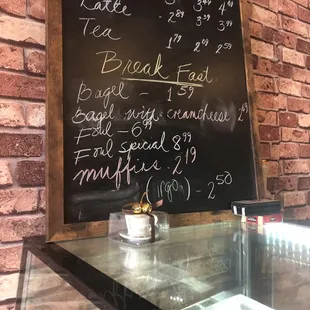 Latte 3
Tea 2.89 3.49 4
1.79 2.09 2.59
Break Fast
Bagel - 1.59
Bagel with creamcheese 2.69
Foul - 6.99
Foul special 8.99
muffins 2.19
- 2.50